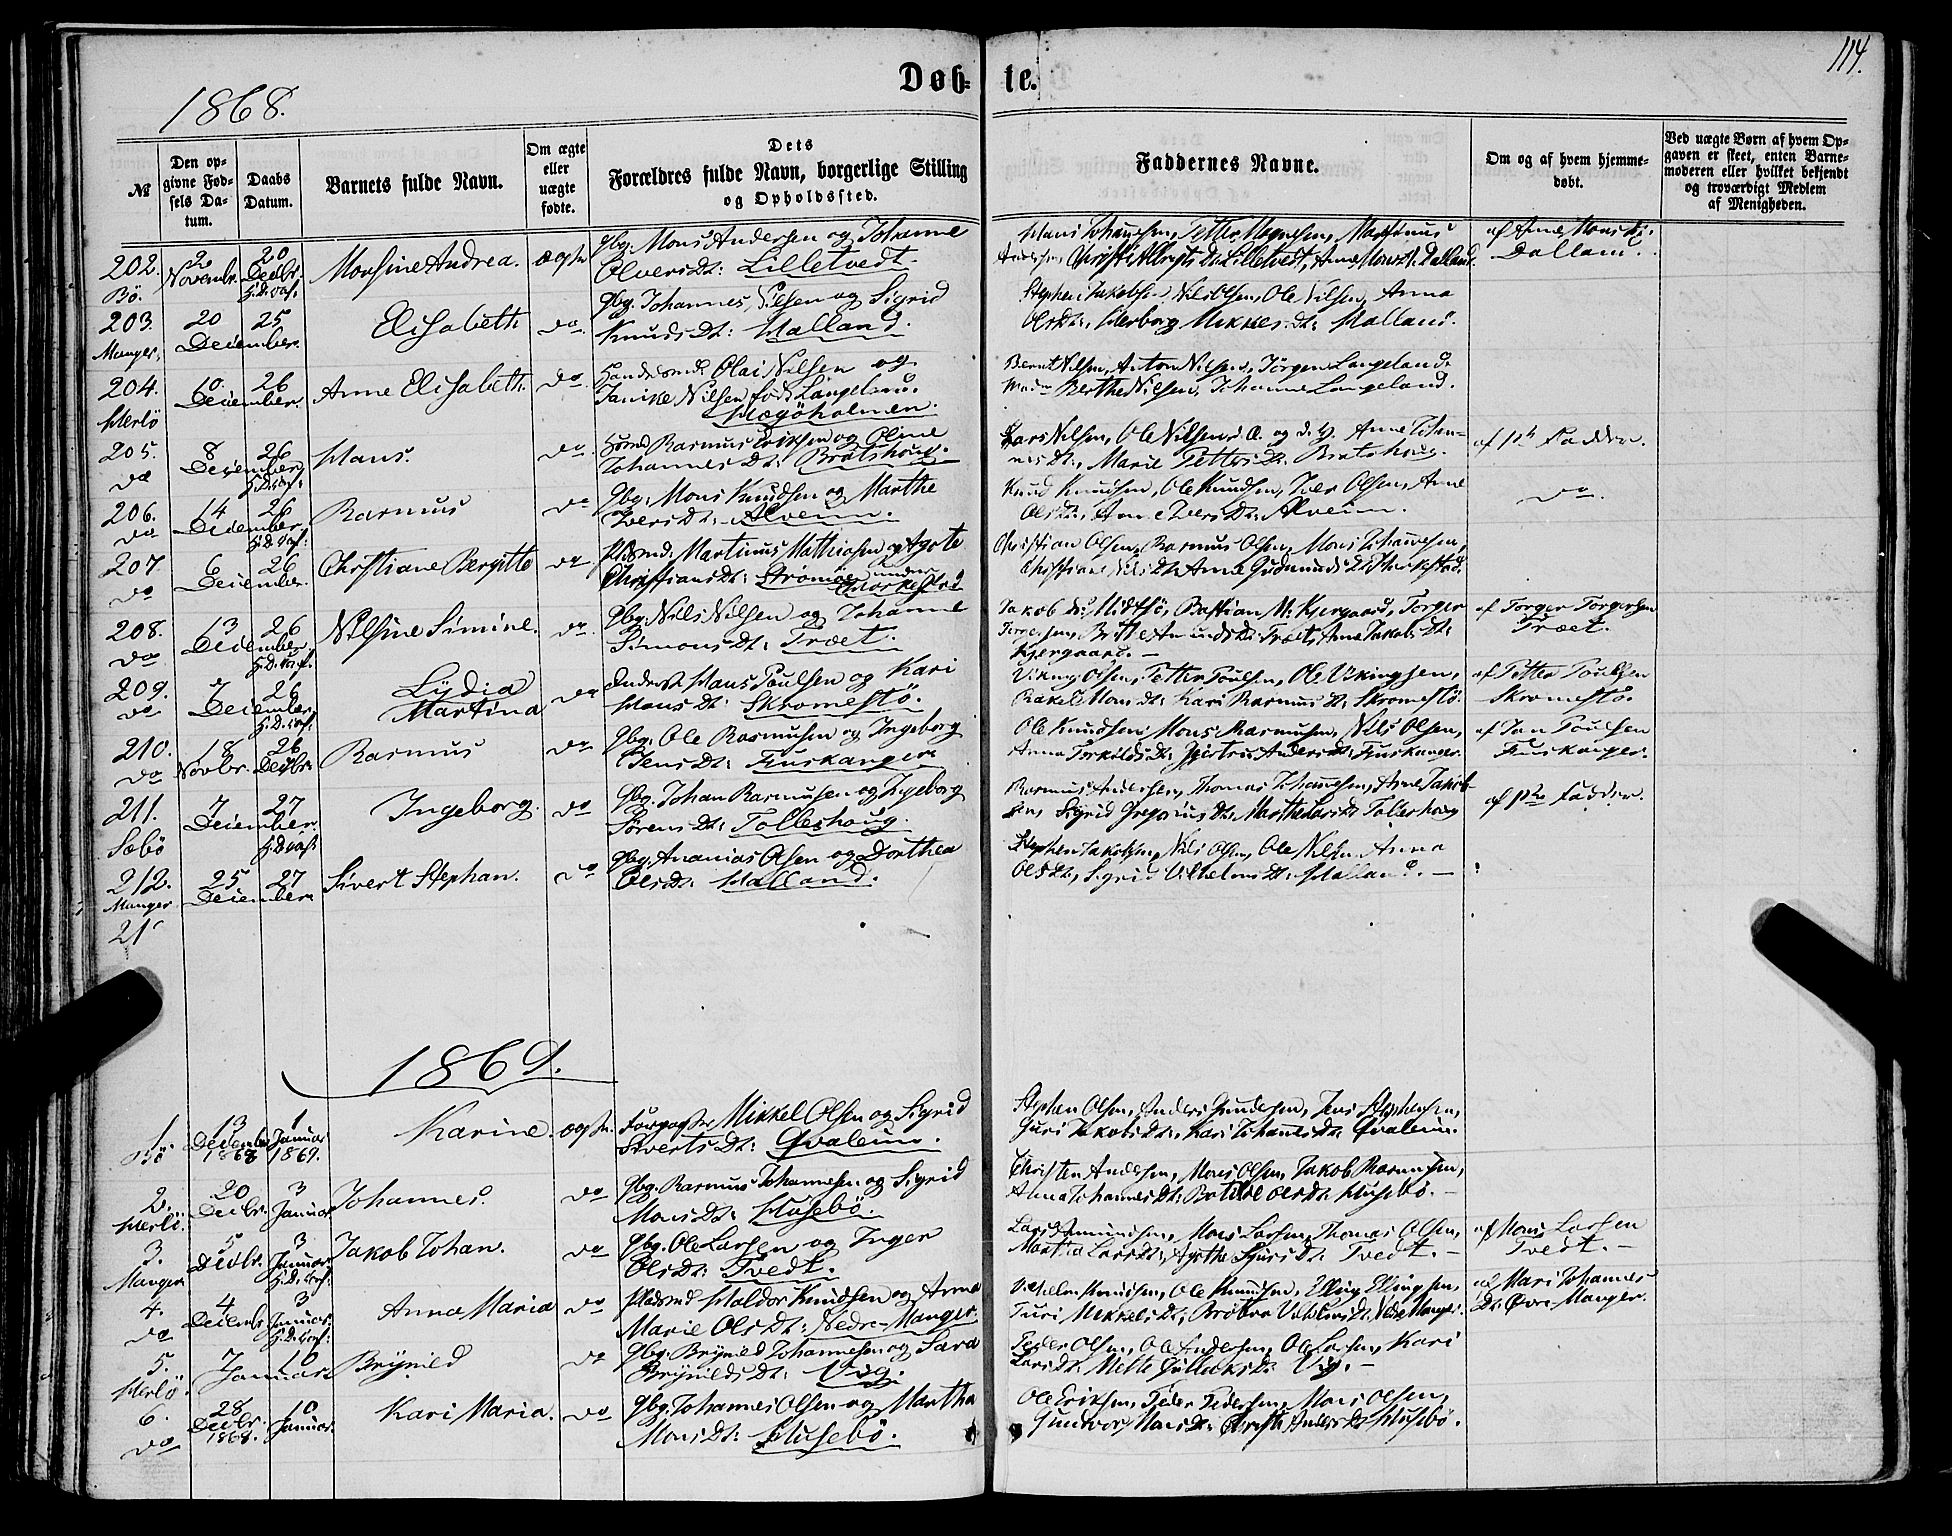 114.
Døb- te.
1868.
№
Den opgivne Fødsels Datum.
Daabs Datum.
Barnets fulde Navn.
Om ægte eller uægte fødte.
Dets Forældres fulde Navn, borgerlige Stilling og Opholdssted.
Faddernes Navne.
Om og af hvem hjemmedøbt.
Ved uægte Børn af hvem Opgaven er skeet, enten Barnemoderen eller hvilket bekjendt og troværdigt Medlem af Menigheden.
202. Bö. 2 Novembr. 20 Decbr. Monsine Andrea. ægte
Gbg. Mons Andersen og Johanne
Olversdt: Lilletvedt.
Hans Johannesen, Petter Magnesen, Martinus
Andersen, Lilletvedt, Anne Monsdt. Dalland.
af Anne Monsdt.
Dalland.
203. Manger. 20 25 December. Elisabeth. do
Gbg. Johannes Nilsen og Sigrid
Knudsdt: Halland.
Stephen Jakobsen, Nils Olsen, Ole Nilsen, Anna
Olsdt:, Herborg Mikkelsdt: Halland.
204. Herlö 10 26 December. Anne Elisabeth. do
Olai Nilsen og
Janike Nilsen fød Langeland.
Hægöholmen.
Bernt Nilsen, Anton Nilsen, Jörgen Langeland,
Berthe Nilsen, Johanne Langeland.
205. do 8 26 December Hans. do
Rasmus Eriksen og Oline
Johannesdt: Bratshoug.
Lars Nilsen, Ole Nilsen d. Æ. og d. Y. Anne Johan-
nesdt:, Marie Pettersdt: Bratshoug.
af 1ste Fadder.
206. do 14 26 December Rasmus do
Gbg. Mons Knudsen og Marthe
Iversdt: Alveim.
Knud Knudsen, Ole Knudsen, Iver Olsen, Anne
Olsdt:, Anne Iversdt: Alveim.
do.
207. do 6 26 December. Christiane Bergitte do
Pladsmd: Martinus Mathiasen og Agate
Christiansdt: Strömöe under
Christian Olsen, Rasmus Olsen, Mons Johannesen,
Christiane Nilsdt: Anne Gudmundsdt:
208. do 13 26 December Nilsine Simine. do
Gbg. Nils Nilsen og Johanne
Simonsdt: Træet.
Jakob Midttö, Bastian M. Kjergaard, Torger
Torgersen, Britte Amundsdt: Træet, Anne Jakobsdt:
Kjergaard.
af Torger Torgersen
Træet.
209. do 7 26 December Lydia
Martina do
Hans Poulsen og Kari
Hansdt: Skromestö.
Viking Olsen, Petter Poulsen, Ole Vikingsen,
Rakel Monsdt: Kari Rasmusdt: Skromestö.
af Petter Poulsen
Skromestö.
210. do 18 Novbr. 26 Decbr. Rasmus do
Gbg. Ole Rasmussen og Ingeborg
Jensdt: Fuskanger
Ole Knudsen, Mons Rasmussen, Nils Olsen,
Anna Torkildsdt: Andersdt: Fuskanger.
af Jan Poulsen
Fuskanger.
211. Sæbö 7 27 December. Ingeborg. do
Gbg. Johan Rasmussen og Ingeborg
Sörensdt: Tolleshoug.
Rasmus Andersen, Thomas Johannesen, Arne Jakob-
sen, Sigrid Gregoriusdt: Marthe Larsdt: Tolleshoug
af 1ste Fadder.
212. Manger 25 27 December Sivert Stephan. do
Gbg. Ananias Olsen og Dorthea
Olsdt: Halland.
Stephen Jakobsen, Nils Olsen, Ole Nilsen, Anna
Olsdt:, Sigrid Vilhelmsdt: Halland.
21
1869.
1. Bö 13 Decembr 1868 1 Januar 1869. Karine. ægte.
Mikkel Olsen og Sigrid
Sivertsdt: Qvaleim.
Stephen Olsen, Anders Gundersen, Jens Stephensen,
Guri Jakobsdt:, Kari Johannesdt: Qvaleim.
2. Herlö. 20 Decbr. 3 Januar Johannes. do
Gbg. Rasmus Johannesen og Sigrid
Monsdt: Husebö.
Christen Andersen, Mons Olsen, Jakob Rasmussen,
Anna Johannesdt: Botilde Olsdt: Husebö.
3. Manger 5 Decbr. 3 Januar Jakob Johan. do
Gbg. Ole Larsen og Inger
Olsdt: Tvedt.
Lars Amundsen, Mons Larsen, Thomas Olsen,
Martha Larsdt:, Agathe Sjursdt: Tvedt.
af Mons Larsen
Tvedt.
4. do 4 Decbr 3 Januar. Anna Maria do
Pladsmd Haldor Knudsen og Anne
Marie Olsdt: Nedre-Manger.
Vilhelm Knudsen, Ole Knudsen, Elling Ellingsen,
Turi Mikkelsdt:, Vilhelmsdt: Nedre Manger.
af Mari Johannes
Dt: Övre Manger.
5. Herlö 7 10 Januar. Brynild do
Gbg. Brynild Johannesen og Sara
Brynildsdt: Vig.
Peder Olsen, Ole Andersen, Ole Larsen, Kari
Larsdt: Mette Gullaksdt: Vig.
6. do 28 Decbr. 1868. 10 Januar. Kari Maria. do
Gbg. Johannes Olsen og Martha
Monsdt: Husebö.
Ole Eriksen, Peder Pedersen, Mons Olsen,
Gundvor Monsdt: Andersdt: Husebö.